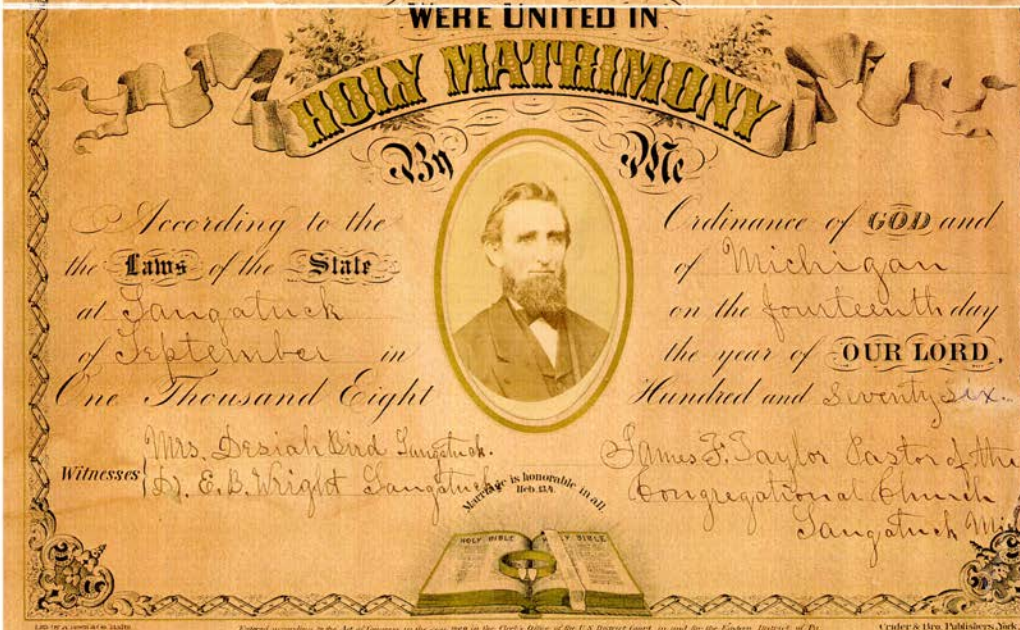 WERE UNITED IN
HOLY MATRIMONY
By Me
According to the Ordinance of GOD and
the Laws of the State of Michigan
at Saugatuck on the fourteenth day
of September in the year of OUR LORD,
One Thousand Eight Hundred and Seventy Six.
Witnesses
Mrs. Desiah Bird Saugatuck.
Dr. E. B. Wright Saugatuck
James F. Taylor Pastor of the
Congregational Church
Saugatuck
Marriage is honorable in all
Heb. 13.4.
HOLY BIBLE
HOLY BIBLE
Entered according to the Act of Congress in the year in the Clerk's Office of the U.S. District Court in and for the Eastern District of Pa
Crider & Bro. Publishers, York,